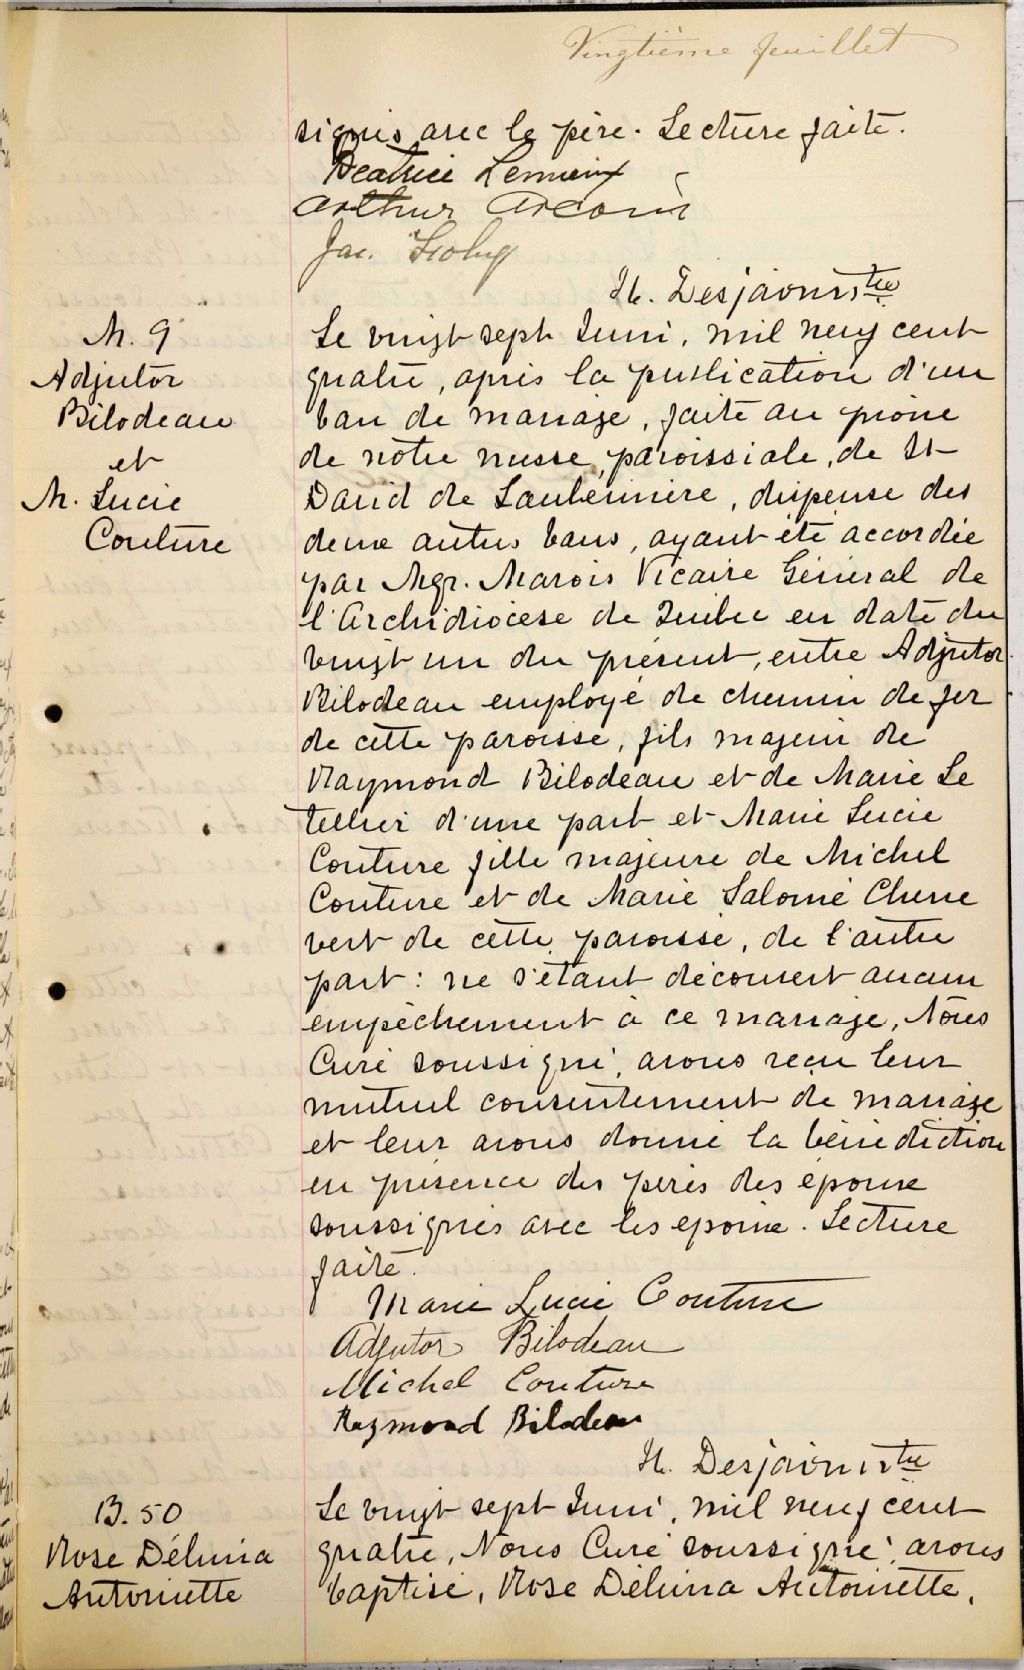 Vingtième feuillet
signés avec le père. Lecture faite.
Béatrice Lemieux
Arthur Arcouir
Jac.
H. Desjardins ptre
M. 9
Adjutor
Bilodeau
et
M. Lucie
Couture
Le vingt sept Juin, mil neuf cent
quatre, après la publication d'un
ban de mariage, faite au prône
de notre messe paroissiale, de St
David de Laubérivière, dispense des
deux autres bans, ayant été accordée
par Mgr. Marois Vicaire Général de
l'Archidiocèse de Québec en date du
vingt un du présent, entre Adjutor
Bilodeau employé de chemin de fer
de cette paroisse, fils majeur de
Raymond Bilodeau et de Marie Le
tellier d'une part et Marie Lucie
Couture fille majeure de Michel
Couture et de Marie Salomé Chene
vert de cette paroisse, de l'autre
part : ne s'étant découvert aucun
empêchement à ce mariage, Nous
Curé soussigné, avons reçu leur
mutuel consentement de mariage
et leur avons donné la bénédiction
en présence des pères des époux
soussignés avec les époux. Lecture
faite.
Marie Lucie Couture
Adjutor Bilodeau
Michel Couture
Raymond Bilodeau
H. Desjardins ptre
B. 50
Rose Délima
Antoinette
Le vingt sept Juin, mil neuf cent
quatre, Nous Curé soussigné, avons
baptisé, Rose Délima Antoinette,